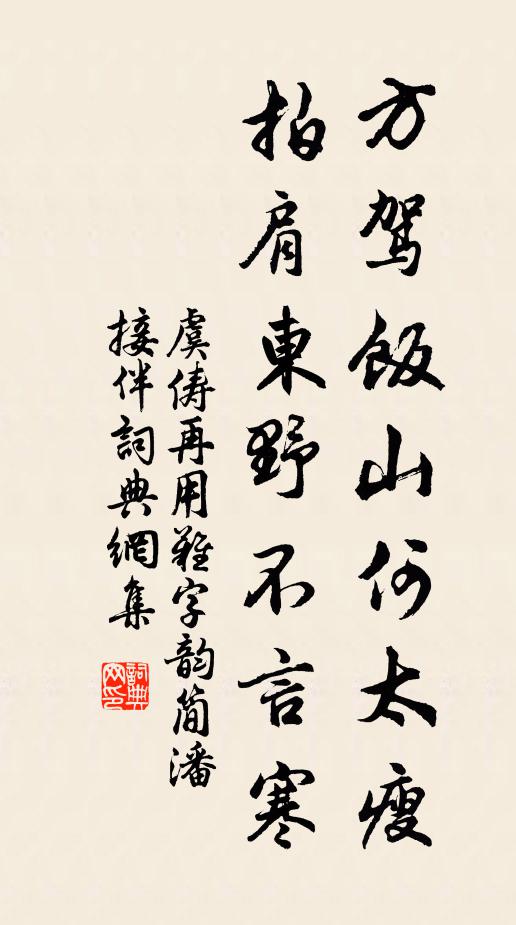 方駕飯山何太瘦
拍肩東野不言寒
虞儔再用難字韵简潘
接伴詞典網集
詞典
网印